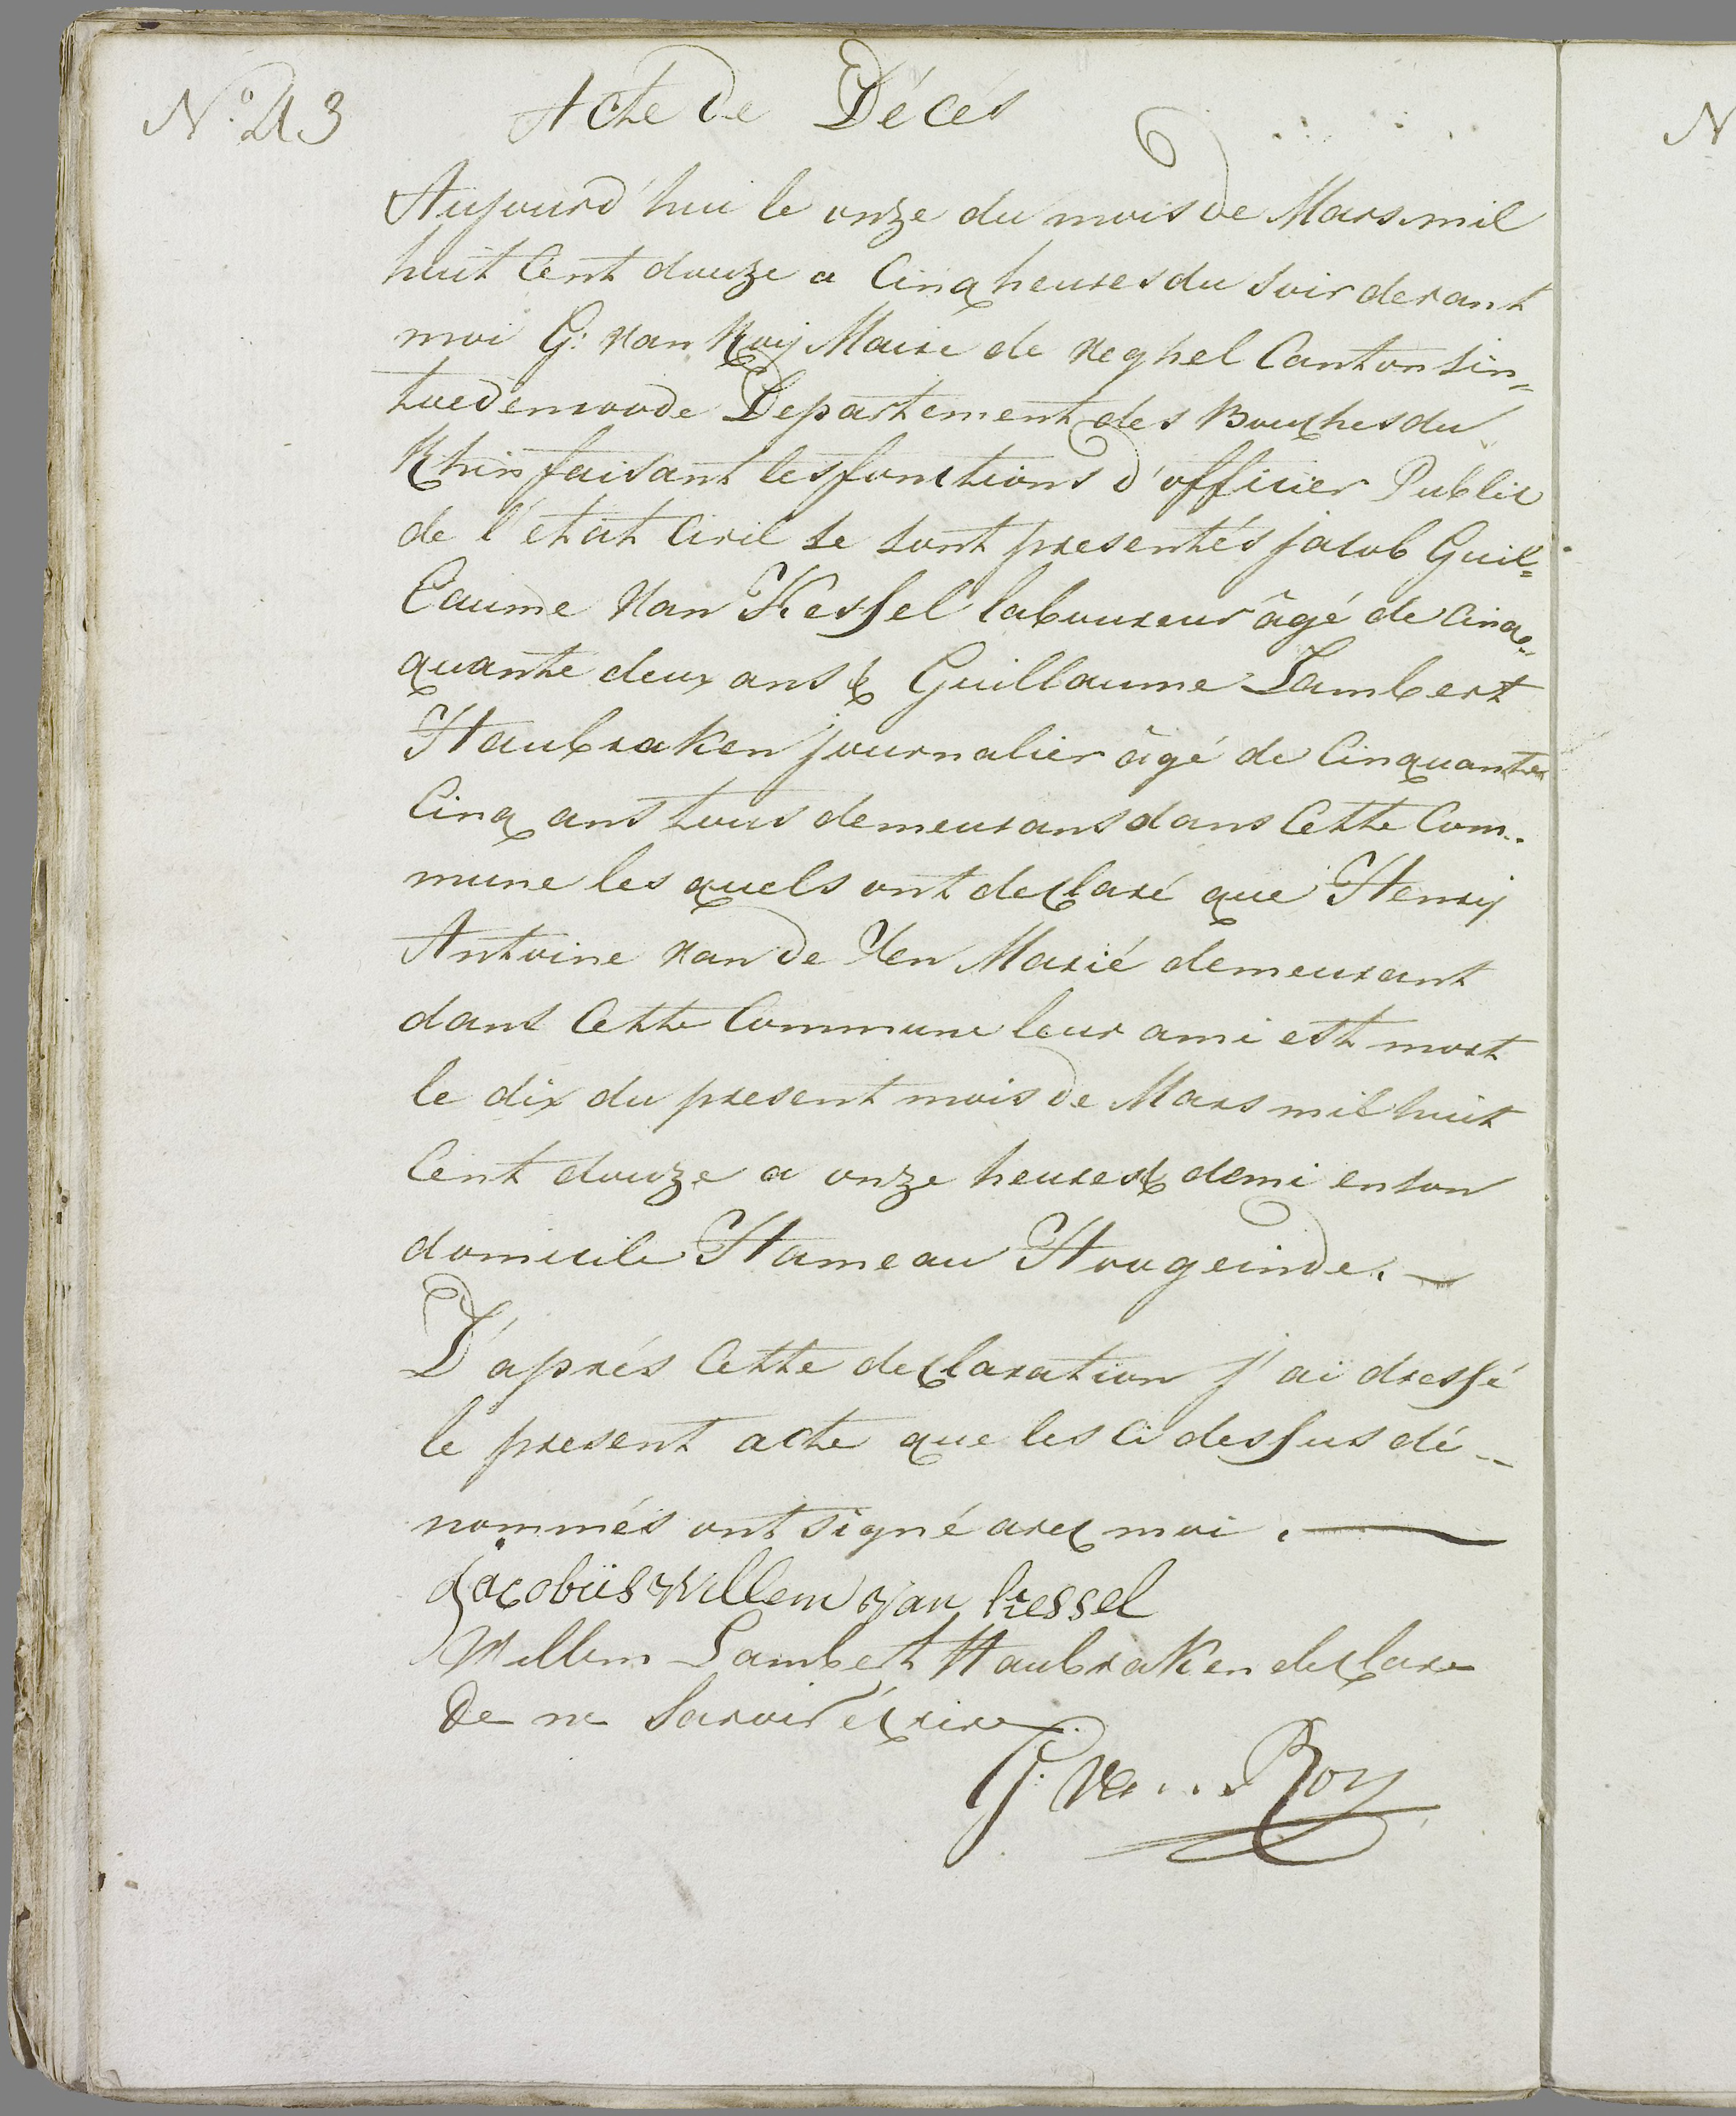 N.o 43
Acte de Décés
Aujourd'hui le onze du mois de Mars mil
huit Cent douze a Cinq heures du soir devant
moi G: van Roij Maire de veghel Canton sin=
toedenroode Departement des Bouches du
Rhin faisant les fonctions d'officier Public
de l'état Civil se sont presentés jacob Guil=
laume van Kessel laboureur âgé de cinq=
quante deux ans & Guillaume Lambert
Haubraken journalier âgé de Cinquante
Cinq ans tous demeurans dans Cette Com=
mune les quels ont declaré que Henrij
Antoine van de Ven Marié demeurant
dans Cette Commune leur ami est mort
le dix du present mois de Mars mil huit
Cent douze a onze heures & demi en son
domicile Hameau Hoogeinde.
D'aprés Cette declaration j'ai dressé
le present acte que les Ci dessus dé=
nommés ont signé avec moi.
Jacobüs Willem van kessel
Willem Lambert Haubraken declare
De ne Savoir écrire
G. van Roy
N